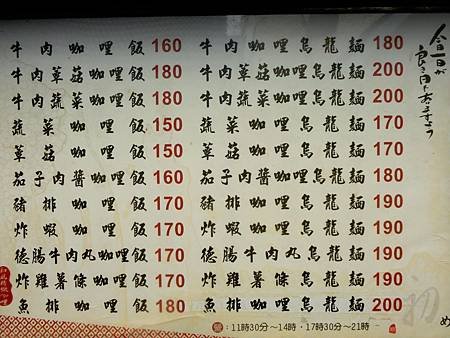 牛肉咖哩飯 160
牛肉蕈菇咖哩飯 180
牛肉蔬菜咖哩飯 180
蔬菜咖哩飯 150
蕈菇咖哩飯 150
茄子肉醬咖哩飯 160
豬排咖哩飯 170
炸蝦咖哩飯 170
德腸牛肉丸咖哩飯 170
炸雞薯條咖哩飯 170
魚排咖哩飯 180
牛肉咖哩烏龍麵 180
牛肉蕈菇咖哩烏龍麵 200
牛肉蔬菜咖哩烏龍麵 200
蔬菜咖哩烏龍麵 170
蕈菇咖哩烏龍麵 170
茄子肉醬咖哩烏龍麵 180
豬排咖哩烏龍麵 190
炸蝦咖哩烏龍麵 190
德腸牛肉丸烏龍麵 190
炸雞薯條咖哩烏龍麵 190
魚排咖哩烏龍麵 200
今日一日が
良き日であますよう
：11時30分～14時・17時30分～21時
初
め